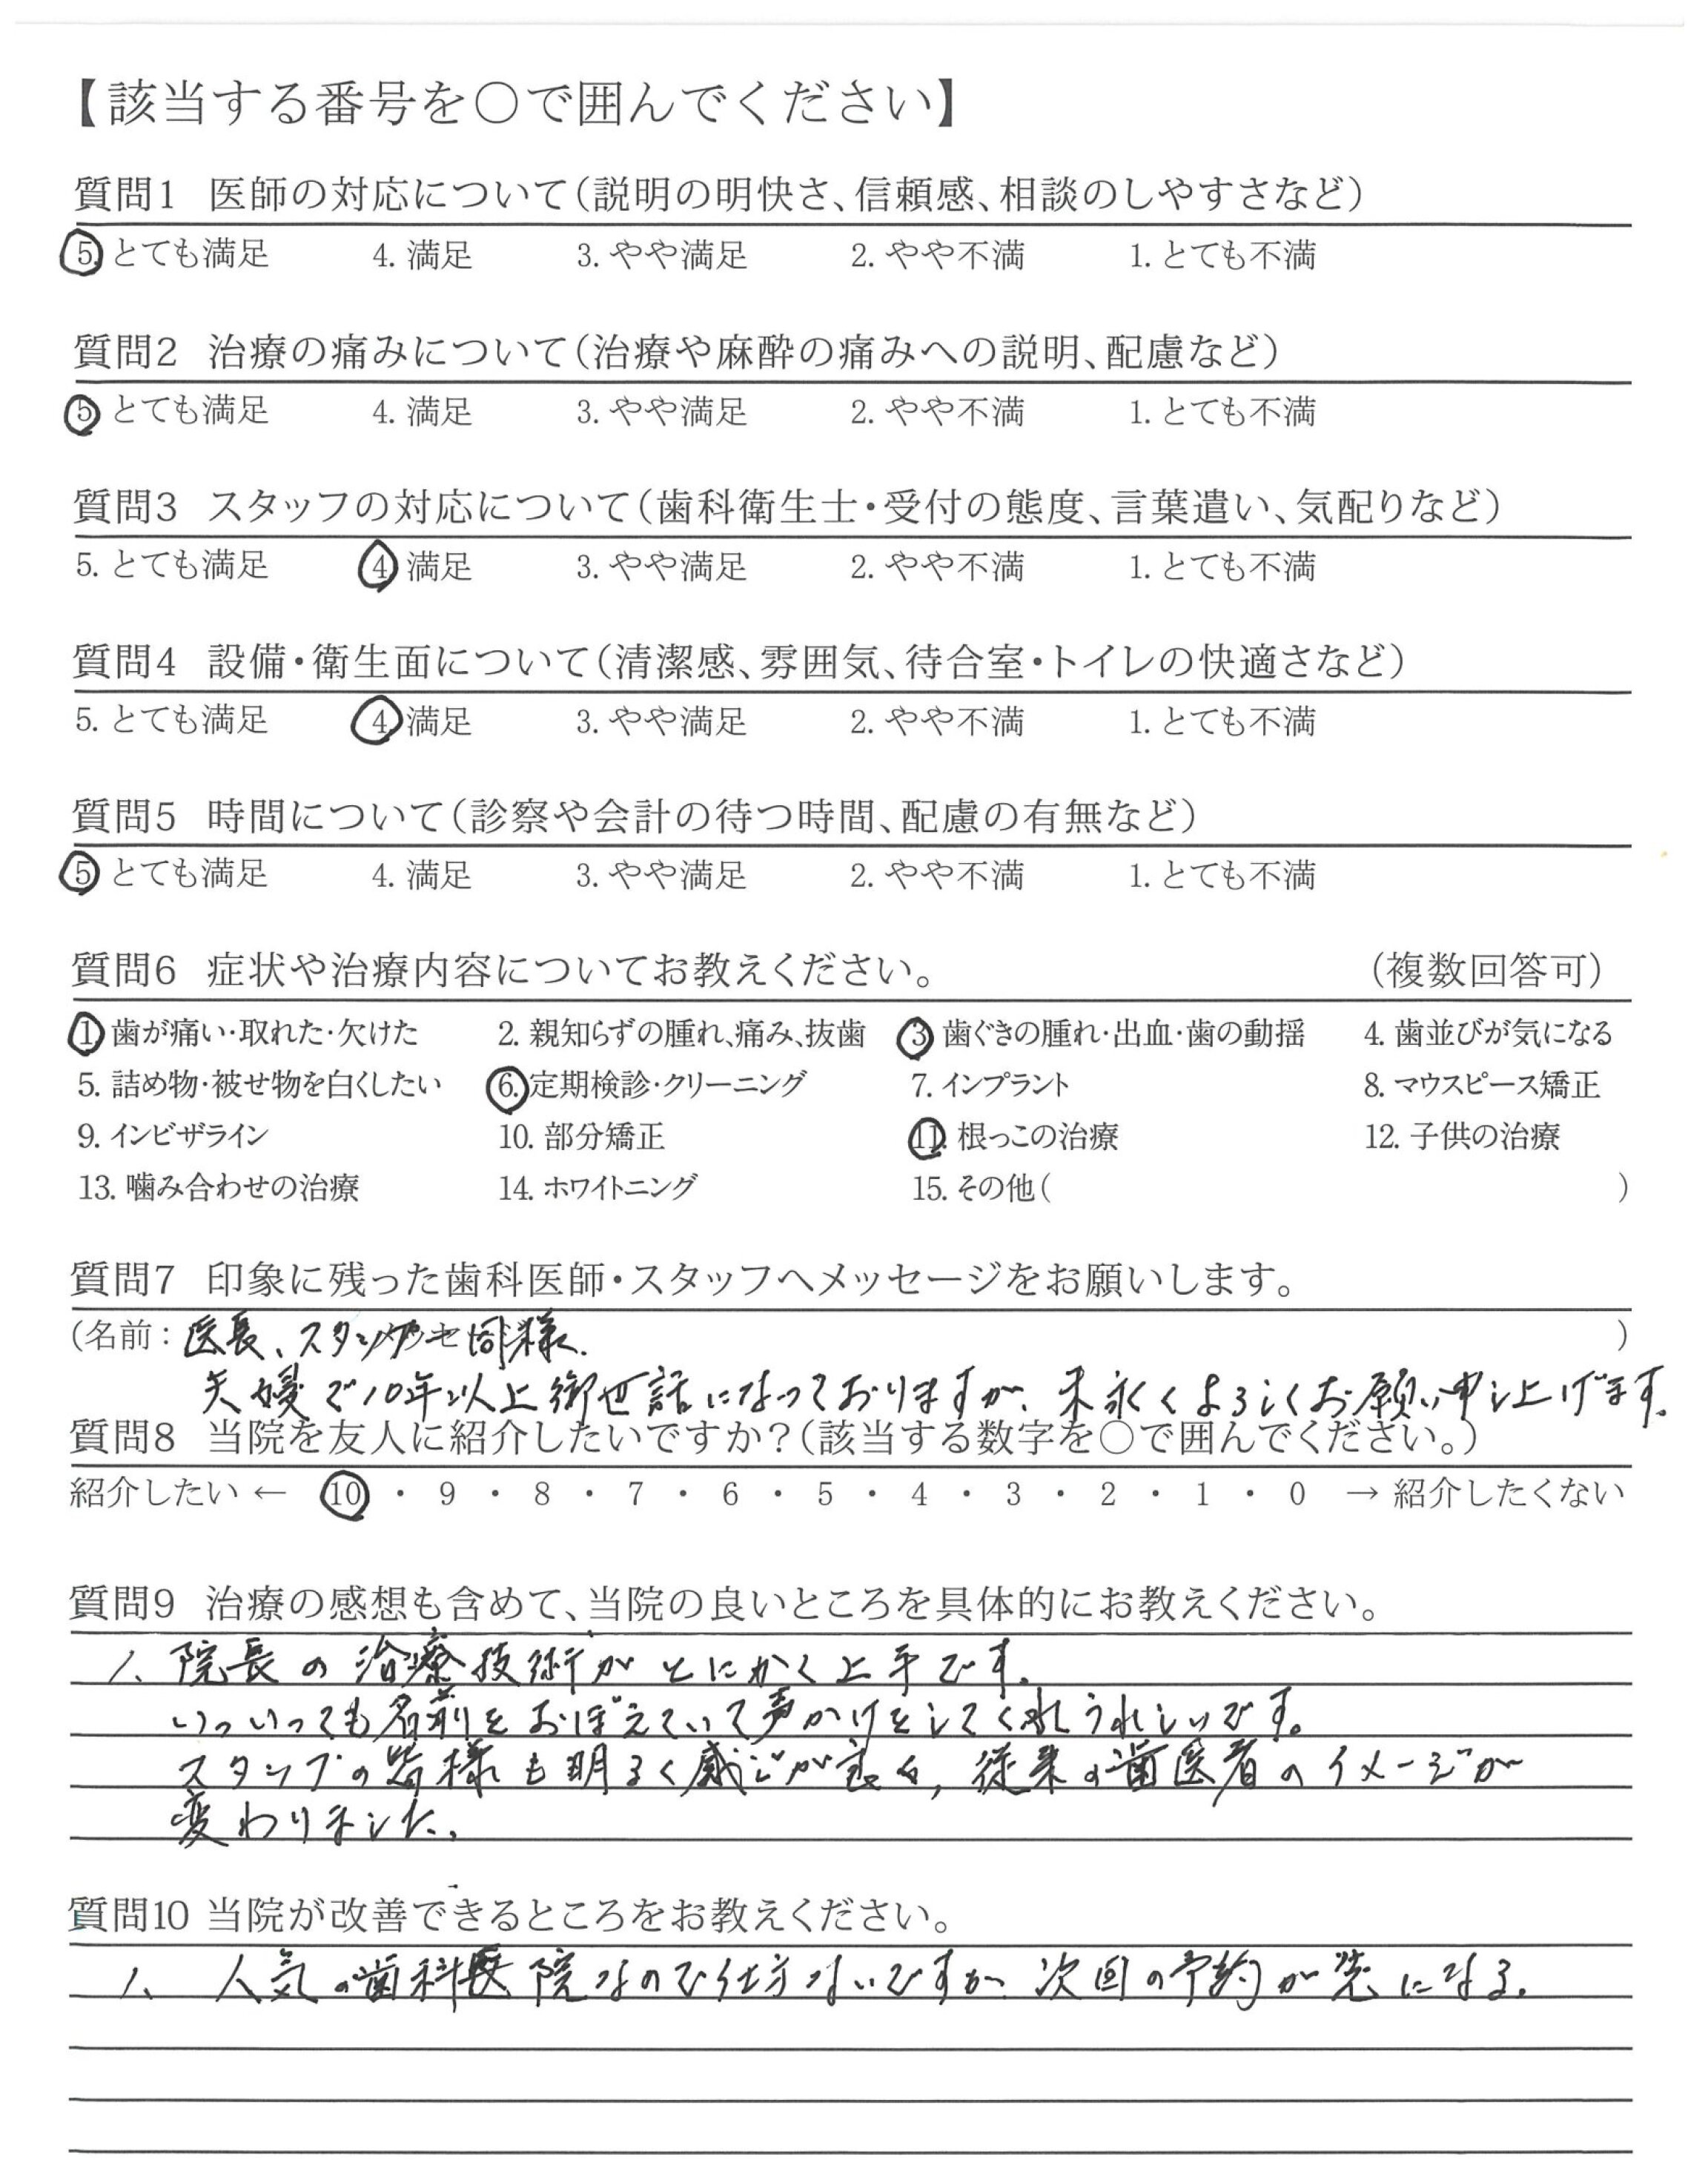 【該当する番号を○で囲んでください】
質問1 医師の対応について(説明の明快さ、信頼感、相談のしやすさなど)
5. とても満足 4. 満足 3. やや満足 2. やや不満 1. とても不満
質問2 治療の痛みについて(治療や麻酔の痛みへの説明、配慮など)
5. とても満足 4. 満足 3. やや満足 2. やや不満 1. とても不満
質問3 スタッフの対応について(歯科衛生士・受付の態度、言葉遣い、気配りなど)
5. とても満足 4. 満足 3. やや満足 2. やや不満 1. とても不満
質問4 設備・衛生面について(清潔感、雰囲気、待合室・トイレの快適さなど)
5. とても満足 4. 満足 3. やや満足 2. やや不満 1. とても不満
質問5 時間について(診察や会計の待つ時間、配慮の有無など)
5. とても満足 4. 満足 3. やや満足 2. やや不満 1. とても不満
質問6 症状や治療内容についてお教えください。 (複数回答可)
1. 歯が痛い・取れた・欠けた 2. 親知らずの腫れ、痛み、抜歯 3. 歯ぐきの腫れ・出血・歯の動揺 4. 歯並びが気になる
5. 詰め物・被せ物を白くしたい 6. 定期検診・クリーニング 7. インプラント 8. マウスピース矯正
9. インビザライン 10. 部分矯正 11. 根っこの治療 12. 子供の治療
13. 噛み合わせの治療 14. ホワイトニング 15. その他( )
質問7 印象に残った歯科医師・スタッフへメッセージをお願いします。
(名前: 医長、スタッフ一同様. )
夫婦で10年以上御世話になっておりますが、末永くよろしくお願い申し上げます。
質問8 当院を友人に紹介したいですか?(該当する数字を○で囲んでください。)
紹介したい ← 10 ・ 9 ・ 8 ・ 7 ・ 6 ・ 5 ・ 4 ・ 3 ・ 2 ・ 1 ・ 0 → 紹介したくない
質問9 治療の感想も含めて、当院の良いところを具体的にお教えください。
1、院長の治療技術がとにかく上手です。
いついっても名前をおぼえていて声かけをしてくれうれしいです。
スタッフの皆様も明るく感じが良く、従来の歯医者のイメージが
変わりました。
質問10 当院が改善できるところをお教えください。
1、人気の歯科医院なので仕方ないですが、次回の予約が先になる。